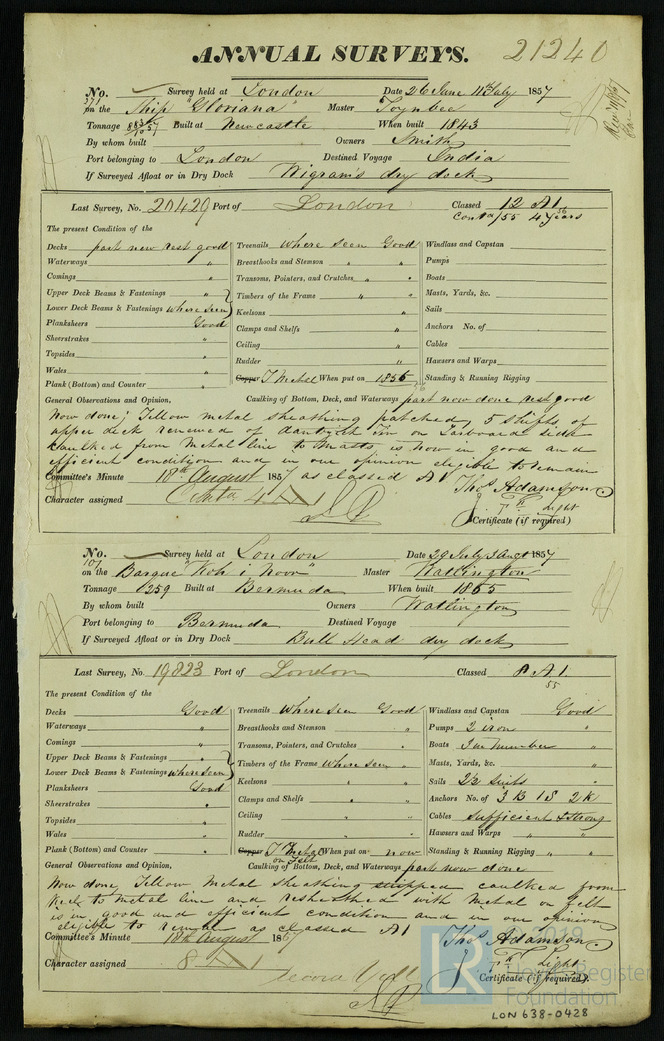 ANNUAL SURVEYS. 21240
No. Survey held at London Date 26 June 11th July 1857
571
on the Ship "Gloriana" Master Toynbee
Tonnage Built at Newcastle When built 1843
By whom built Owners Smith
Port belonging to London Destined Voyage India
If Surveyed Afloat or in Dry Dock Wigram's dry dock
Last Survey, No. 20429 Port of London Classed 12 A1
55 4 years
The present Condition of the
Decks part new rest good Treenails Where seen Good Windlass and Capstan
Waterways " Breasthooks and Stemson " " Pumps
Comings " Transoms, Pointers, and Crutches " " Boats
Upper Deck Beams & Fastenings " Timbers of the Frame " " Masts, Yards, &c.
Lower Deck Beams & Fastenings where seen Keelsons " Sails
Planksheers Good Clamps and Shelfs " Anchors No. of
Sheerstrakes " Ceiling " Cables
Topsides " Rudder " Hawsers and Warps
Wales " Copper Y Metal When put on 1856 Standing & Running Rigging
Plank (Bottom) and Counter " Caulking of Bottom, Deck, and Waterways part now done rest good
General Observations and Opinion,
Now done; Yellow metal sheathing patched, 5 shifts of
upper deck renewed of Dantzich Fir on Larboard side
caulked from Metal line to is now in good and
efficient condition and in our opinion eligible to remain
Committee's Minute 18th August 1857 as classed A1
Thos Adamson
Character assigned 4 A1 Light
Certificate (if required)
No. Survey held at London Date 29 July 3 Augt 1857
107
on the Barque "Koh i Noor" Master Watlington
Tonnage 259 Built at Bermuda When built 1855
By whom built Owners Watlington
Port belonging to Bermuda Destined Voyage
If Surveyed Afloat or in Dry Dock Bull Head dry dock
Last Survey, No. 19823 Port of London Classed 8 A1
55
The present Condition of the
Decks Good Treenails Where seen Good Windlass and Capstan Good
Waterways " Breasthooks and Stemson " Pumps 2 iron "
Comings " Transoms, Pointers, and Crutches " Boats 3 in number "
Upper Deck Beams & Fastenings " Timbers of the Frame where seen " Masts, Yards, &c. "
Lower Deck Beams & Fastenings where seen Keelsons " " Sails 2½ suits "
Planksheers Good Clamps and Shelfs " " Anchors No. of 3 B 1 S 2 K
Sheerstrakes " Ceiling " " Cables sufficient & strong
Topsides " Rudder " " Hawsers and Warps " "
Wales " Copper Y Metal on Felt When put on now Standing & Running Rigging " "
Plank (Bottom) and Counter " Caulking of Bottom, Deck, and Waterways part now done
General Observations and Opinion,
Now done, Yellow Metal sheathing stripped caulked from
keel to metal line and resheathed with metal on felt
is in good and efficient condition and in our opinion
eligible to remain as classed A1
Committee's Minute 18th August 1857 Thos Adamson
Light
Character assigned 8 A1 Certificate (if required).
2019
LR Lloyd's Register
Foundation
LON 638-0428